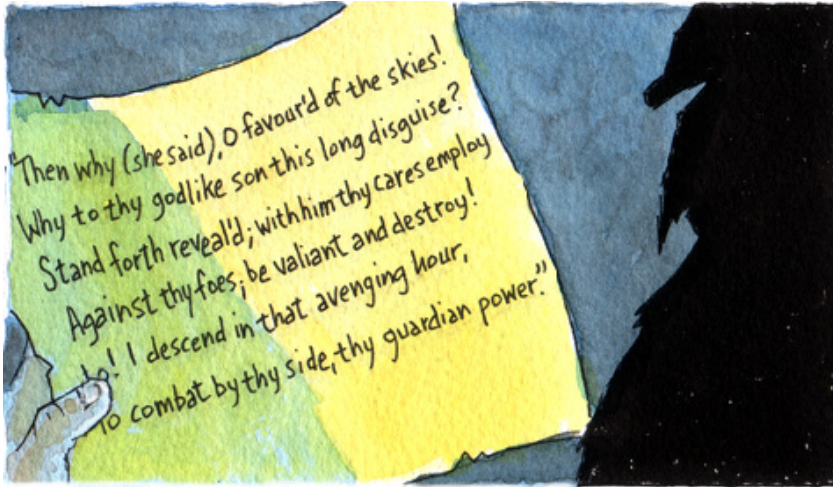 "Then why (she said), O favour'd of the skies!
Why to thy godlike son this long disguise?
Stand forth reveal'd; with him thy cares employ
Against thy foes; be valiant and destroy!
Lo! I descend in that avenging hour,
To combat by thy side, thy guardian power."